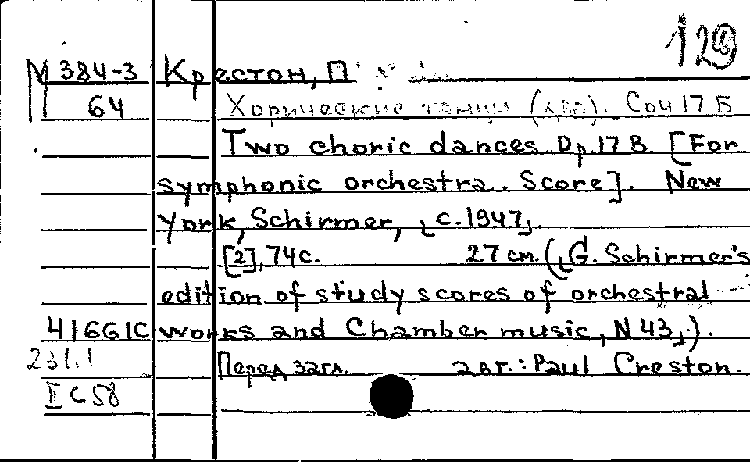 129
М 384-3 Крестон, П
64 Хорические танцы (два). Соч 17 Б
Two choric dances Op.17 B [For
symphonic orchestra. Score]. New
York, Schirmer, [c.1947].
[2], 74с. 27 см. ([G. Schirmer's
edition of study scores of orchestral
41661С works and Chamber music, N 43,]).
231.1 Перед загл. авт.: Paul Creston.
I С 58